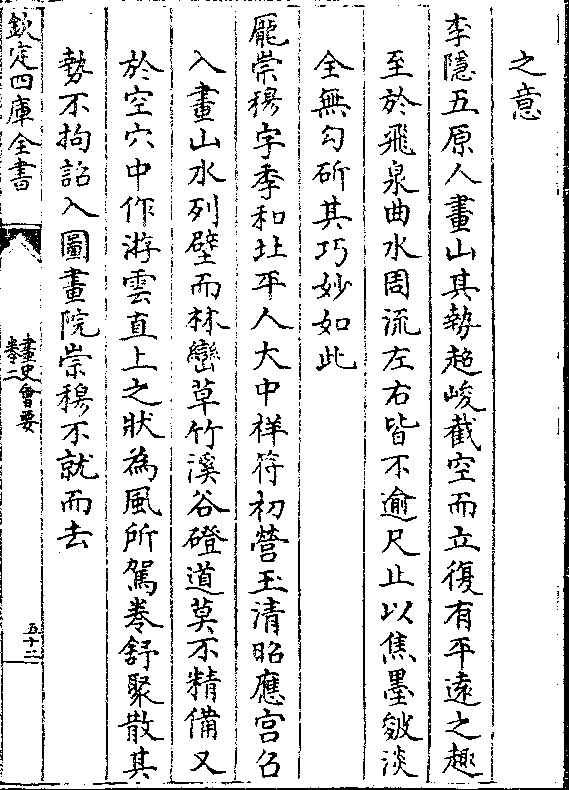 之意
李隱五原人畫山其勢超峻截空而立復有平遠之趣
至於飛泉曲水周流左右皆不逾尺止以焦墨皴淡
全無勾斫其巧妙如此
龎崇穆字季和北平人大中祥符初營玉清昭應宮召
入畫山水列壁而林巒草竹溪谷磴道莫不精備又
於空穴中作游雲直上之狀為風所駕卷舒聚散其
勢不拘詔入圖畫院崇穆不就而去
欽定四庫全書
畫史會要
卷二
五十二